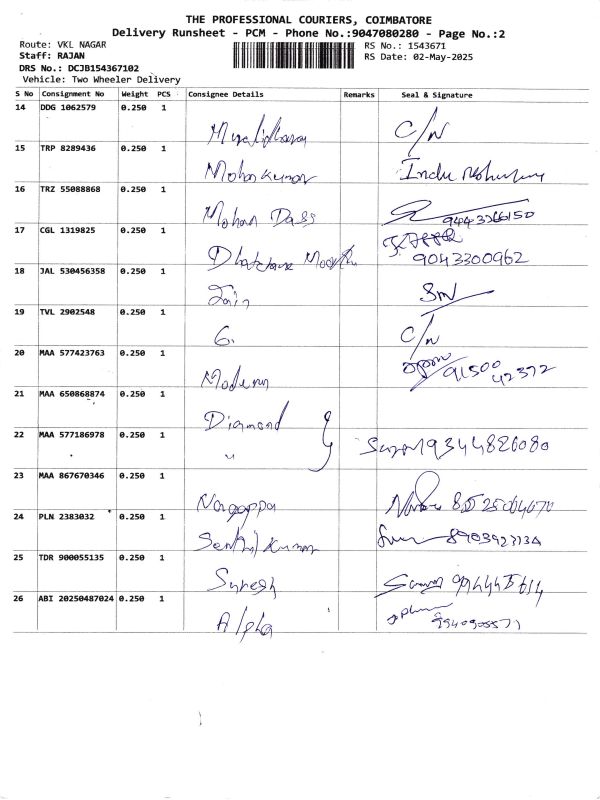 THE PROFESSIONAL COURIERS, COIMBATORE
Delivery Runsheet - PCM - Phone No.:9047080280 - Page No.:2
Route: VKL NAGAR RS No.: 1543671
Staff: RAJAN RS Date: 02-May-2025
DRS No.: DCJB154367102
Vehicle: Two Wheeler Delivery
S No Consignment No Weight PCS Consignee Details Remarks Seal & Signature
14 DDG 1062579 0.250 1 C/N
15 TRP 8289436 0.250 1 Mohan Kumar Indu
16 TRZ 55088868 0.250 1 Mohan Dass
17 CGL 1319825 0.250 1 9043300962
18 JAL 530456358 0.250 1 Jain
19 TVL 2902548 0.250 1 G. C/N
20 MAA 577423763 0.250 1 Modern 91500 42372
21 MAA 650868874 0.250 1 Diamond
22 MAA 577186978 0.250 1 " 9344826080
23 MAA 867670346 0.250 1 Nagappa
24 PLN 2383032 0.250 1 Senthil Kumar
25 TDR 900055135 0.250 1 Suresh
26 ABI 20250487024 0.250 1 Alpha